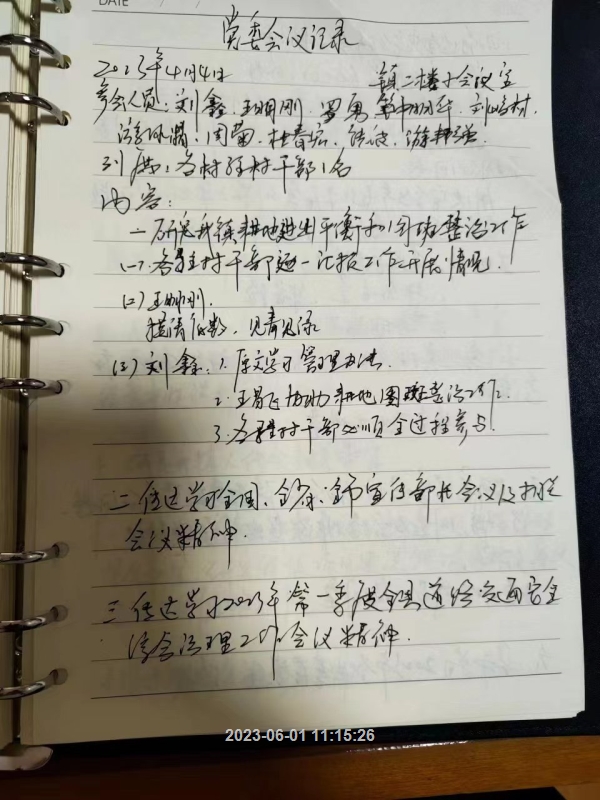 DATE
党委会议记录
2023年4月4日 镇二楼小会议室
参会人员:刘鑫、王明刚、罗勇、 刘 村、
周菊、杜春宏、
列席:各村驻村干部1名
内容:
一、研究我镇耕地进出平衡和图斑整治工作
(一)各驻村干部逐一汇报工作开展情况.
(二)王明刚.
提请
(三)刘鑫:1、原文学习管理办法.
2、王 协助耕地图斑整治工作.
3、各驻村干部必须全过程参与.
二、传达学习全国、全省、全市宣传部长会议
会议精神.
三、传达学习2023年第一季度全县道路交通安全
综合治理工作会议精神.
2023-06-01 11:15:26